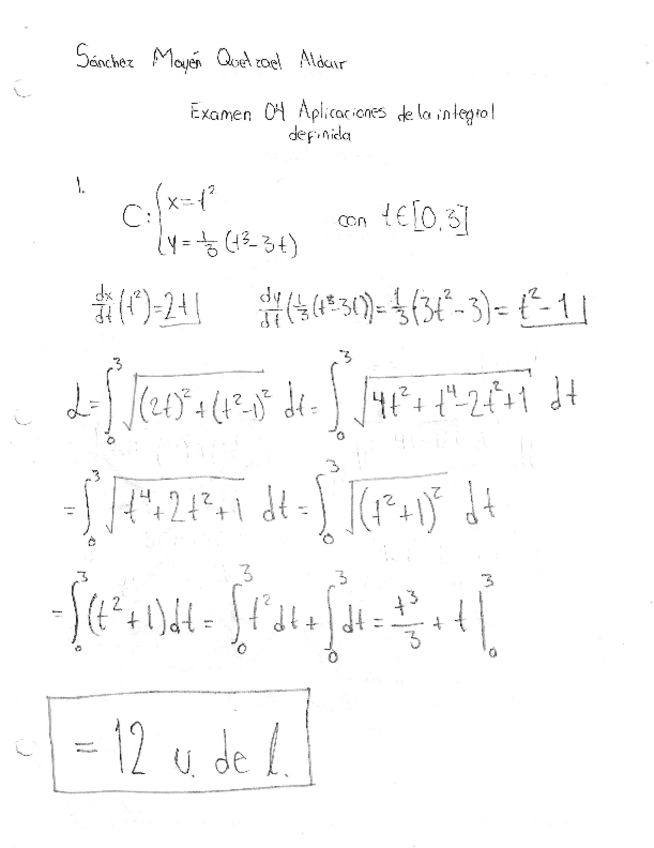 Sánchez Mayén Quetzael Aldair
Examen 04 Aplicaciones de la integral
definida
1.
C: { x = t²
y = 1/3 (t³ - 3t)
con t ∈ [0,3]
dx/dt (t²) = 2t dy/dt (1/3 (t³ - 3t)) = 1/3 (3t² - 3) = t² - 1
L = ∫₀³ √((2t)² + (t² - 1)²) dt = ∫₀³ √(4t² + t⁴ - 2t² + 1) dt
= ∫₀³ √(t⁴ + 2t² + 1) dt = ∫₀³ √((t² + 1)²) dt
= ∫₀³ (t² + 1) dt = ∫₀³ t² dt + ∫₀³ dt = t³/3 + t |₀³
= 12 u. de l.